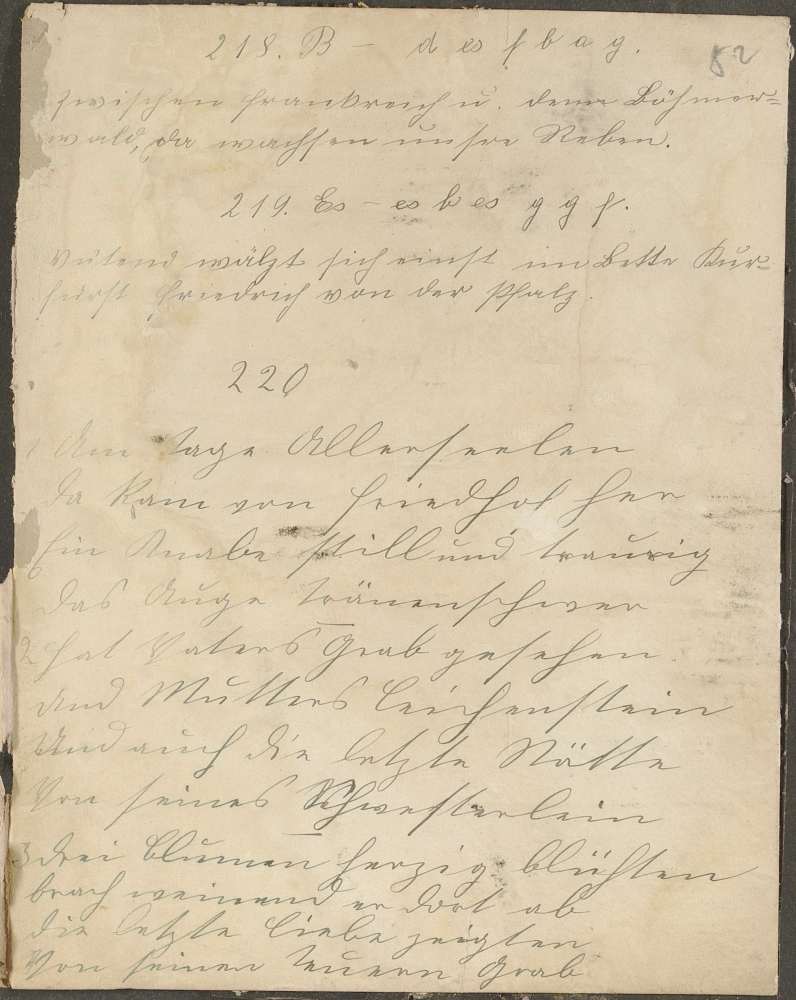 218. B – d es f b a g.
52
Zwischen Frankreich u. dem Böhmer-
wald, da wachsen unsre Reben.
219. Es – es b es g g f.
Wütend wälzt sich einst im Bette Kur-
fürst Friedrich von der Pfalz.
220
1 Am Tage Allerseelen
Da kam von Friedhof her
Ein Knabe still und traurig
Das Auge tränenschwer
2 Hat Vaters Grab gesehen
Und Mutters Leichenstein
Und auch die letzte Stätte
Von seines Schwesterlein
3 Drei Blumen herzig blühten
brach weinend er dort ab
die letzte Liebe zeigten
Von seinen teuern Grab